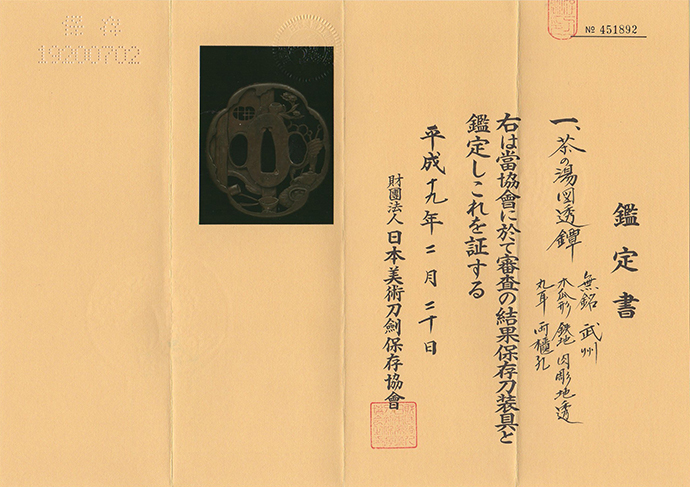 № 451892
鑑定書
一、茶の湯図透鐔
無銘 武州
木瓜形 鉄地 肉彫地透
丸耳 両櫃孔
右は當協會に於て審査の結果保存刀装具と
鑑定しこれを証する
平成十九年二月二十日
財團法人 日本美術刀劍保存協會
保存
19200702